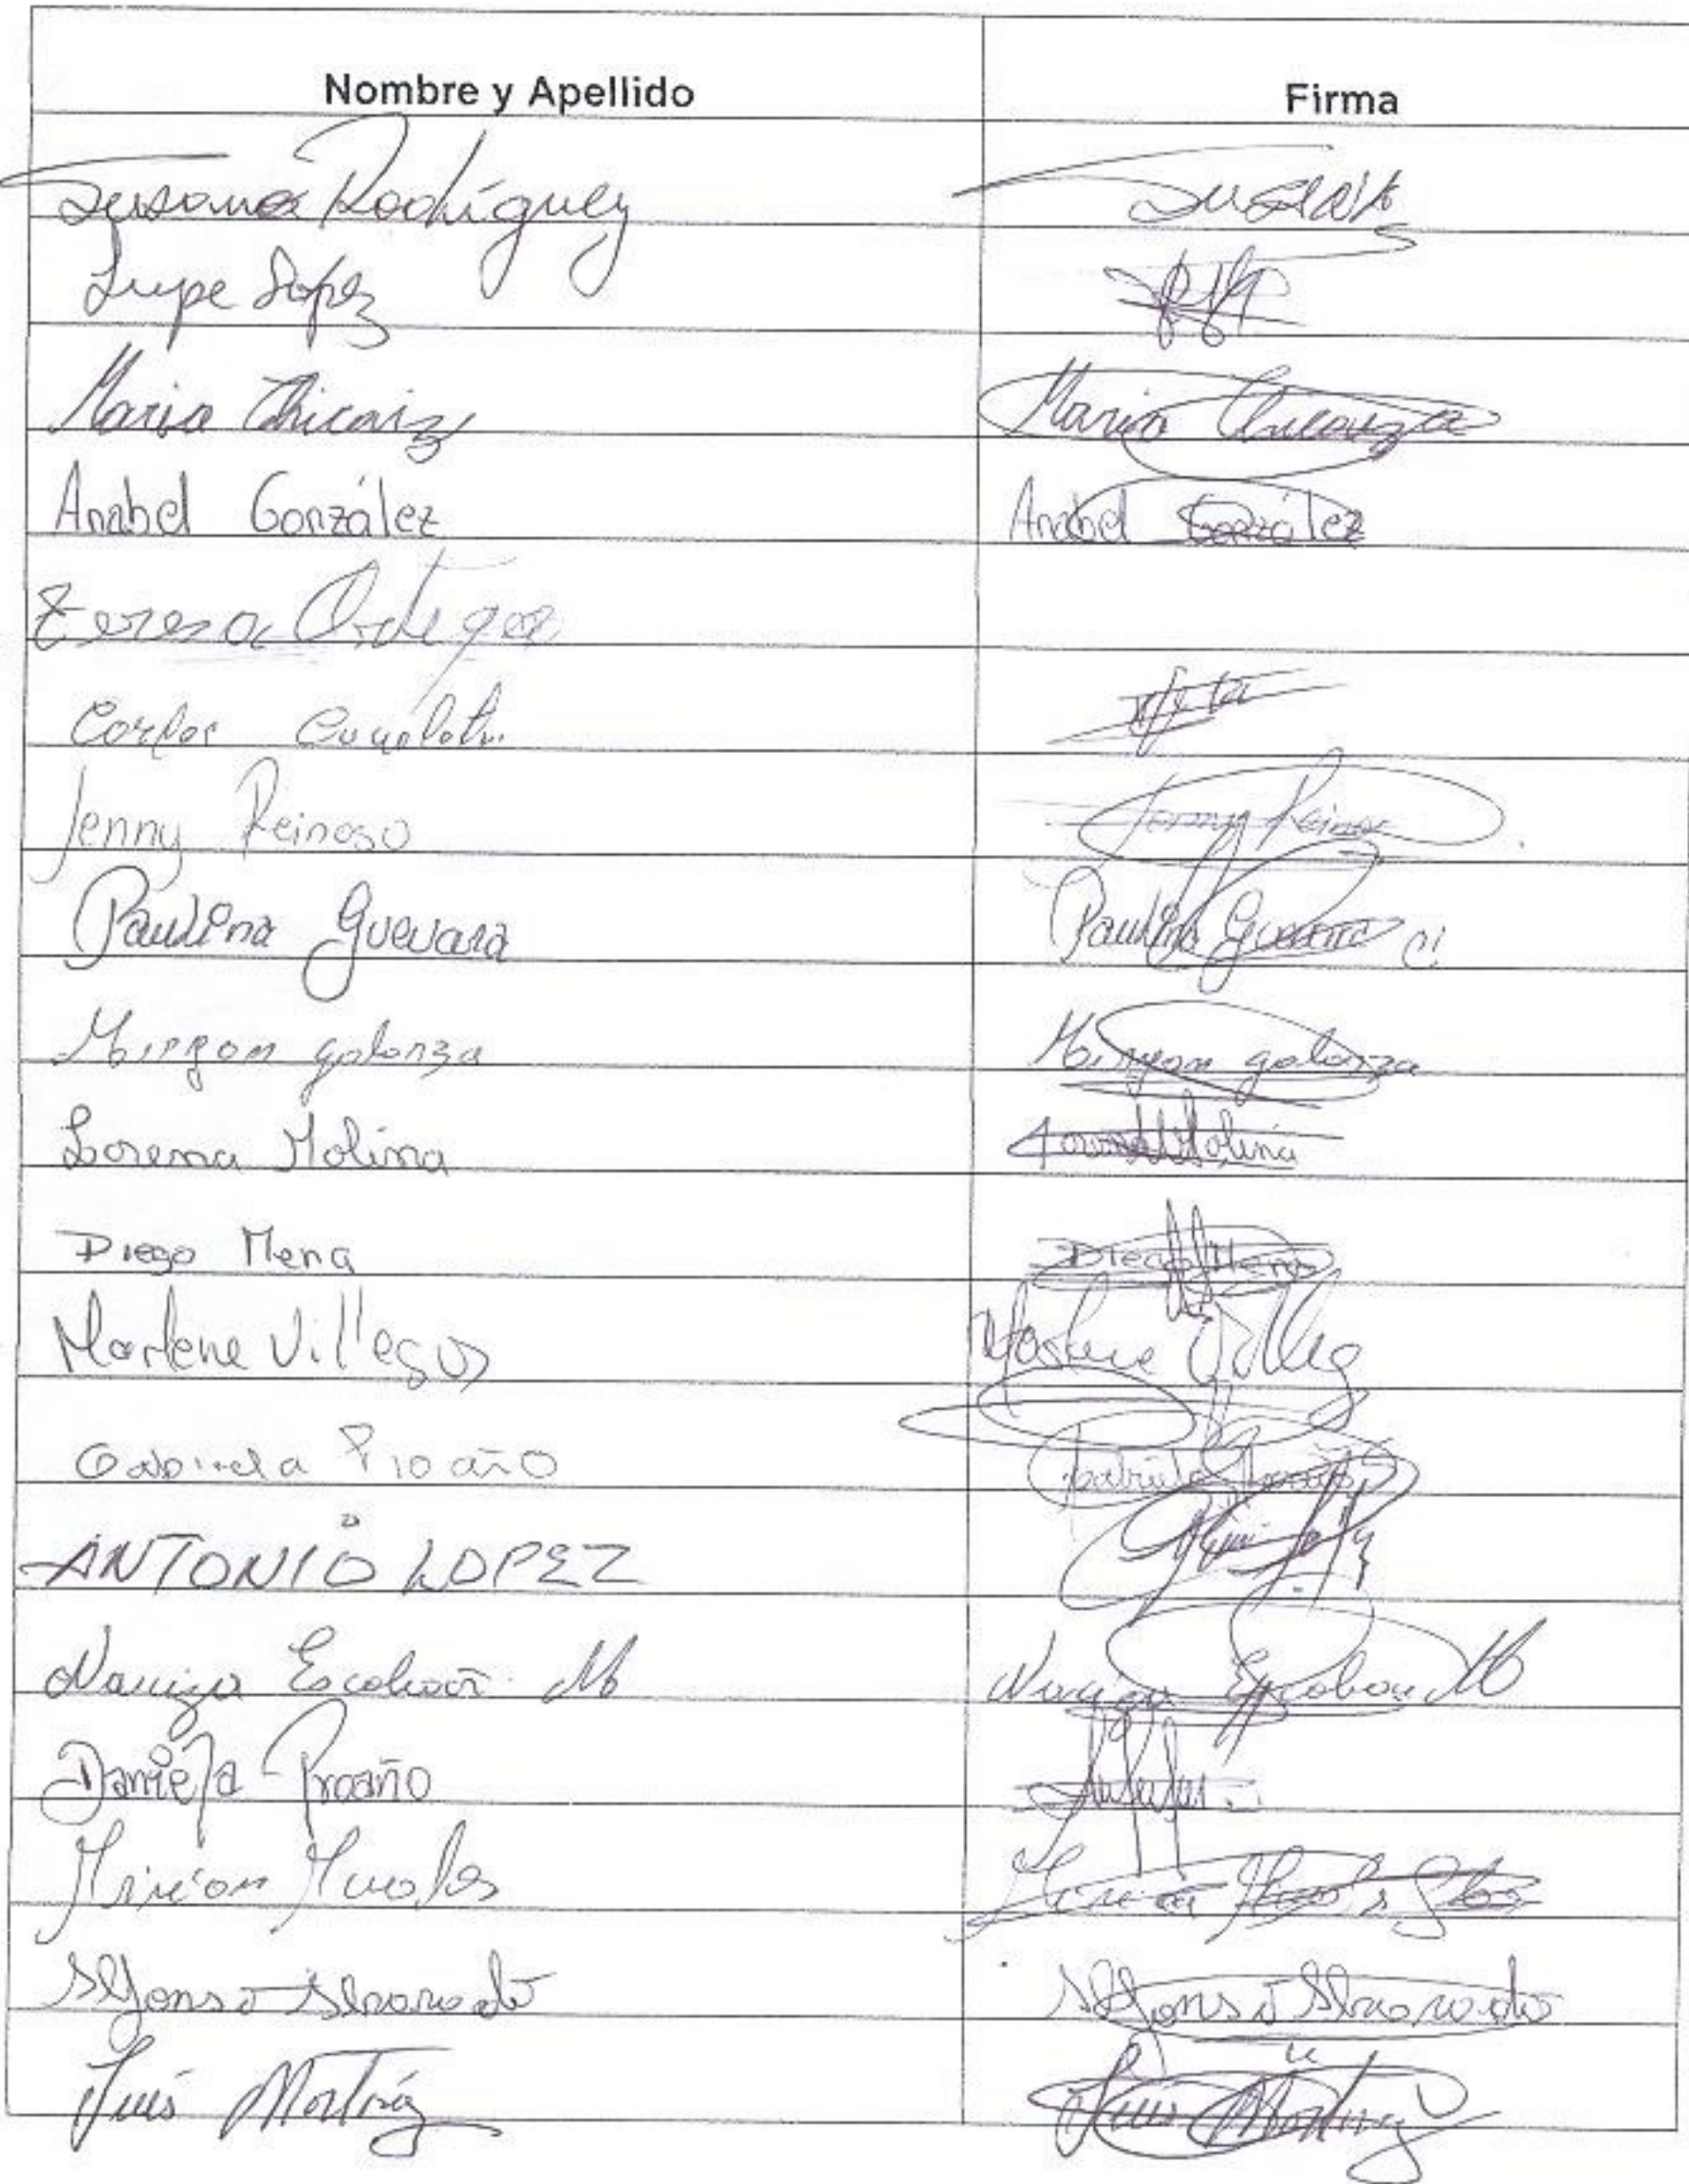 Nombre y Apellido Firma
Susana Rodríguez Susana
Lupe Lopez
Maria Chicaiz Maria Chicaiza
Anabel González Anabel González
Teresa Ortega
Carlos
Jenny Reinoso Jenny Reinoso
Paulina Guevara Paulina Guevara C
Miryam galarza Miryam galarza
Lorena Molina Lorena Molina
Diego Mena Diego Mena
Marlene Villegas Marlene Villeg
Gabriela Proaño Gabriela Proaño
ANTONIO LOPEZ
Narciza Escobar M Narciza Escobar M
Daniela Proaño
Miriam
Alfonso Alvarado Alfonso Alvarado
Luis Martínez Luis Martínez